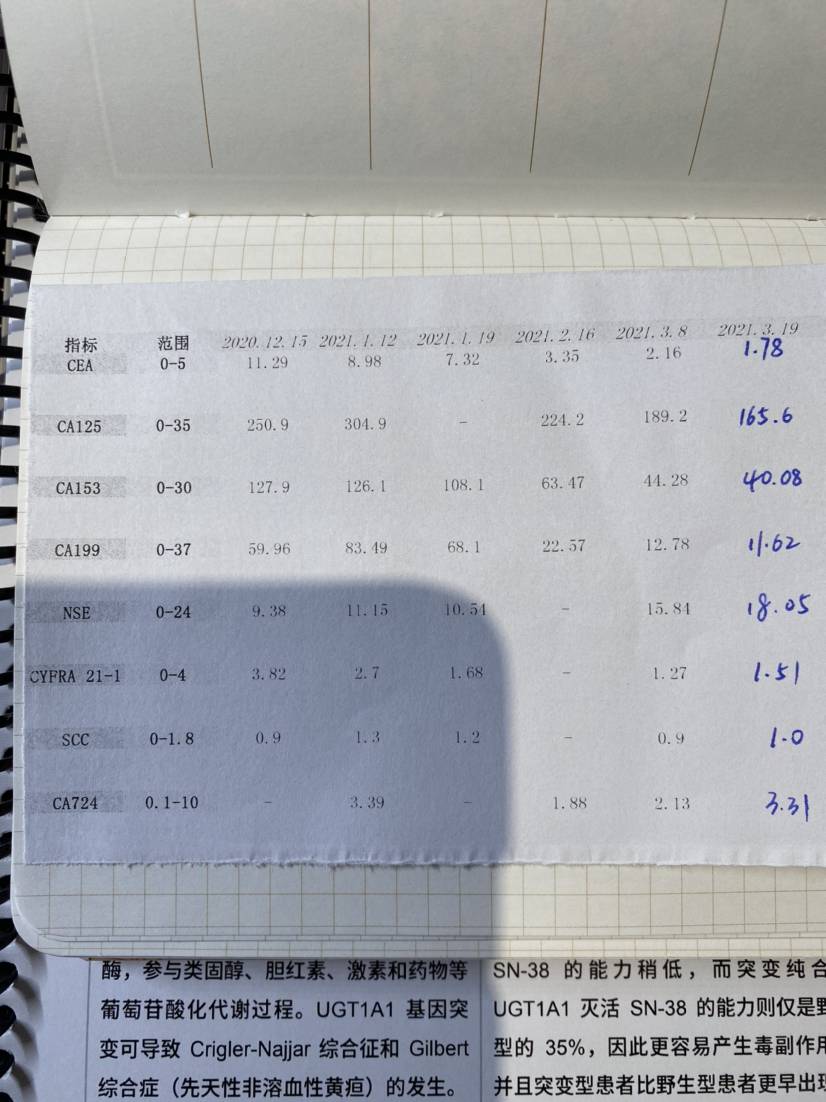 指标 范围 2020.12.15 2021.1.12 2021.1.19 2021.2.16 2021.3.8 2021.3.19
CEA 0-5 11.29 8.98 7.32 3.35 2.16 1.78
CA125 0-35 250.9 304.9 - 224.2 189.2 165.6
CA153 0-30 127.9 126.1 108.1 63.47 44.28 40.08
CA199 0-37 59.96 83.49 68.1 22.57 12.78 11.62
NSE 0-24 9.38 11.15 10.54 - 15.84 18.05
CYFRA 21-1 0-4 3.82 2.7 1.68 - 1.27 1.51
SCC 0-1.8 0.9 1.3 1.2 - 0.9 1.0
CA724 0.1-10 - 3.39 - 1.88 2.13 3.31
酶，参与类固醇、胆红素、激素和药物等
葡萄苷酸化代谢过程。UGT1A1 基因突
变可导致 Crigler-Najjar 综合征和 Gilbert
综合症（先天性非溶血性黄疸）的发生。
SN-38 的能力稍低，而突变纯合
UGT1A1 灭活 SN-38 的能力则仅是野
型的 35%，因此更容易产生毒副作用
并且突变型患者比野生型患者更早出现